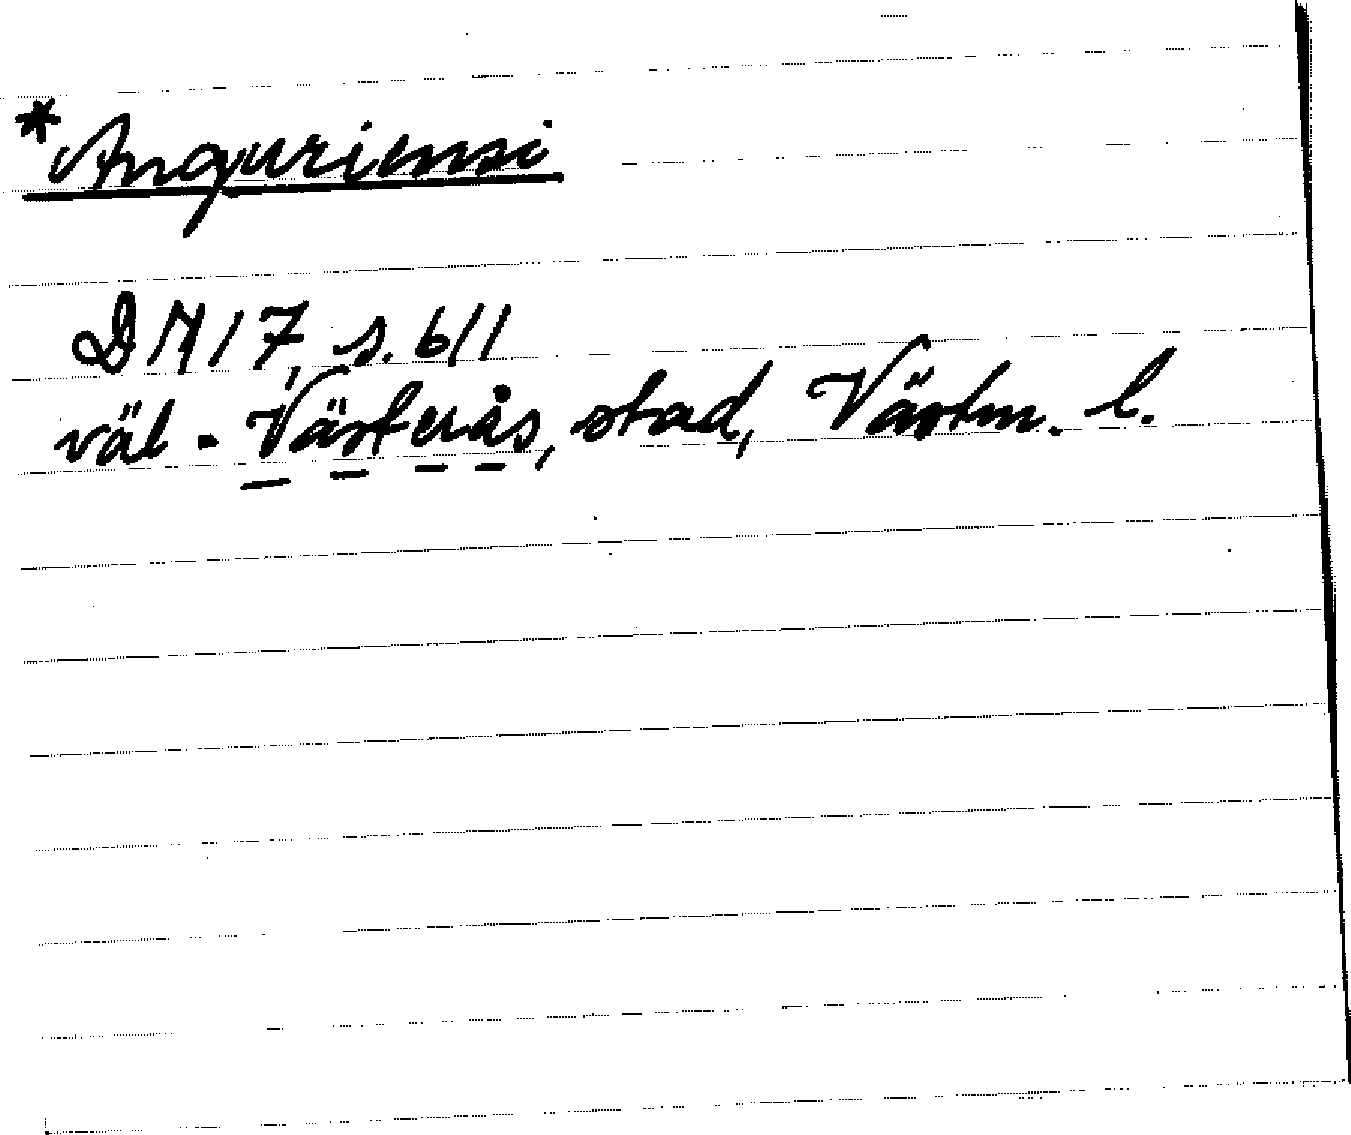 *Anguriensi
DN 17, s. 611
väl - Västerås, stad, Västm. l.